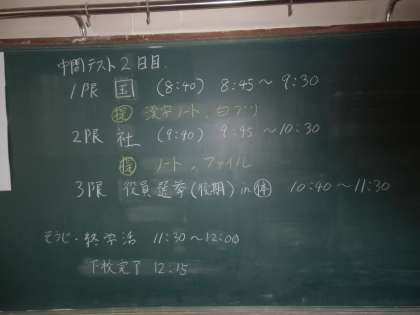 中間テスト2日目
1限 国 (8:40) 8:45～9:30
提 漢字ノート、白プリ
2限 社 (9:40) 9:45～10:30
提 ノート、ファイル
3限 役員選挙(後期)in 体 10:40～11:30
そうじ・終学活 11:30～12:00
下校完了 12:15